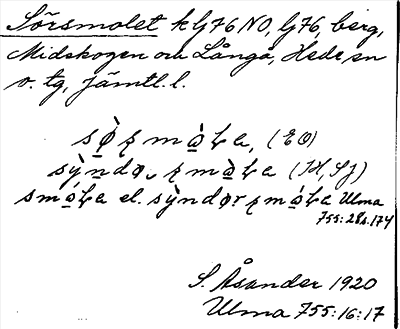 Sörsmolet k G76 NO, G76, berg,
Midskogen och Långå, Hede sn
o. tg, Jämtl. l.
sø̀ʂmo̱ɫa, (EO)
sỳndø, ʂmòɫa (IH, SJ)
smoɫa el. sỳndørʂmoɫa Ulma
755:28 s. 174
S. Åsander 1920
Ulma 755:16:17